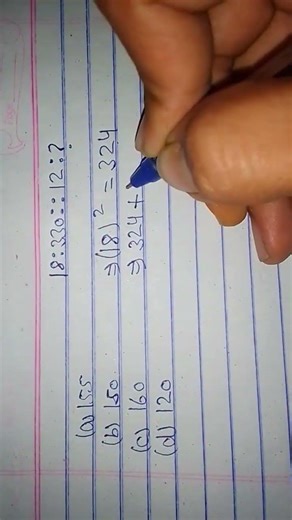 18:330::12:?
(a) 155 ⇒(18)² = 324
(b) 150 ⇒ 324+
(c) 160
(d) 120